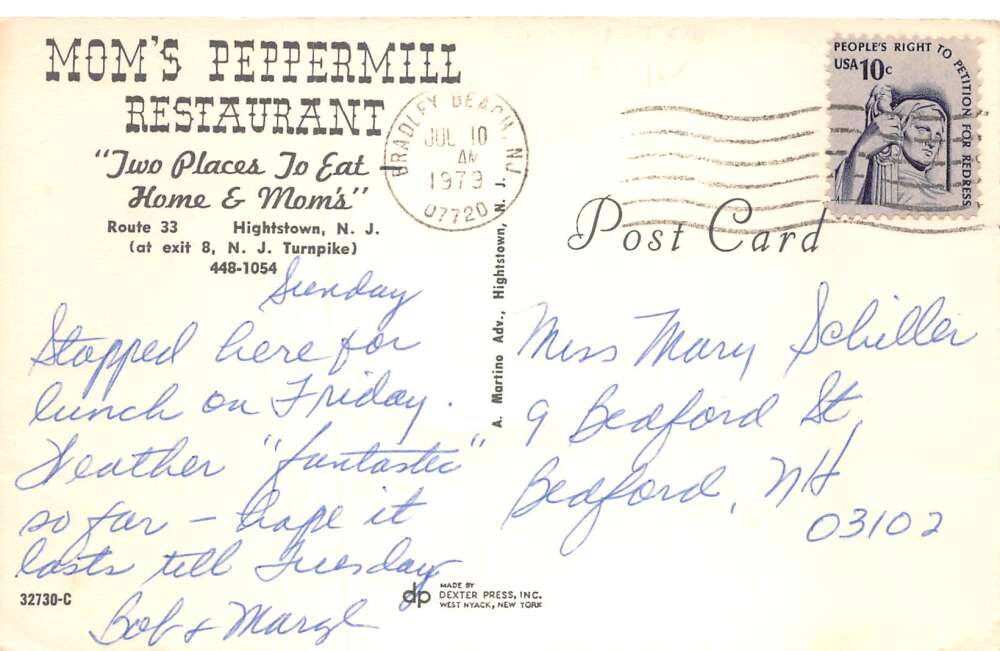 MOM'S PEPPERMILL
RESTAURANT
"Two Places To Eat
Home & Mom's"
Route 33 Hightstown, N. J.
(at exit 8, N. J. Turnpike)
448-1054
Sunday
Stopped here for
lunch on Friday.
Weather "fantastic"
so far - hope it
lasts till Tuesday
Bob &
32730-C
BRADLEY BEACH, NJ
JUL 10
AM
1979
07720
A. Martino Adv., Hightstown, N. J.
MADE BY
dp DEXTER PRESS, INC.
WEST NYACK, NEW YORK
PEOPLE'S RIGHT TO PETITION FOR REDRESS
USA 10c
Post Card
Miss Mary Schiller
9 Bedford St
Bedford, NH
03102